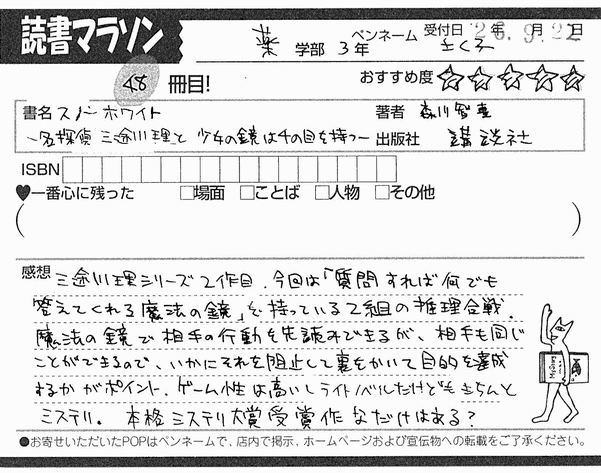 読書マラソン
薬 学部 3年
ペンネーム きくろ
受付日 26年 9月 22日
58 冊目!
おすすめ度 ☆☆☆☆☆
書名 スノーホワイト
著者 森川智喜
~名探偵 三途川理と 少女の鏡は千の目を持つ~
出版社 講談社
ISBN
♥一番心に残った □場面 □ことば □人物 □その他
( )
感想 三途川理シリーズ2作目。今回は「質問すれば何でも
答えてくれる魔法の鏡」を持っている2組の推理合戦。
魔法の鏡で相手の行動を先読みできるが、相手も同じ
ことができるので、いかにそれを阻止して裏をかいて目的を達成
するかがポイント。ゲーム性は高いしライトノベルだけどもきちんと
ミステリ。本格ミステリ大賞受賞作なだけはある?
●お寄せいただいたPOPはペンネームで、店内で掲示、ホームページおよび宣伝物への転載をご了承ください。